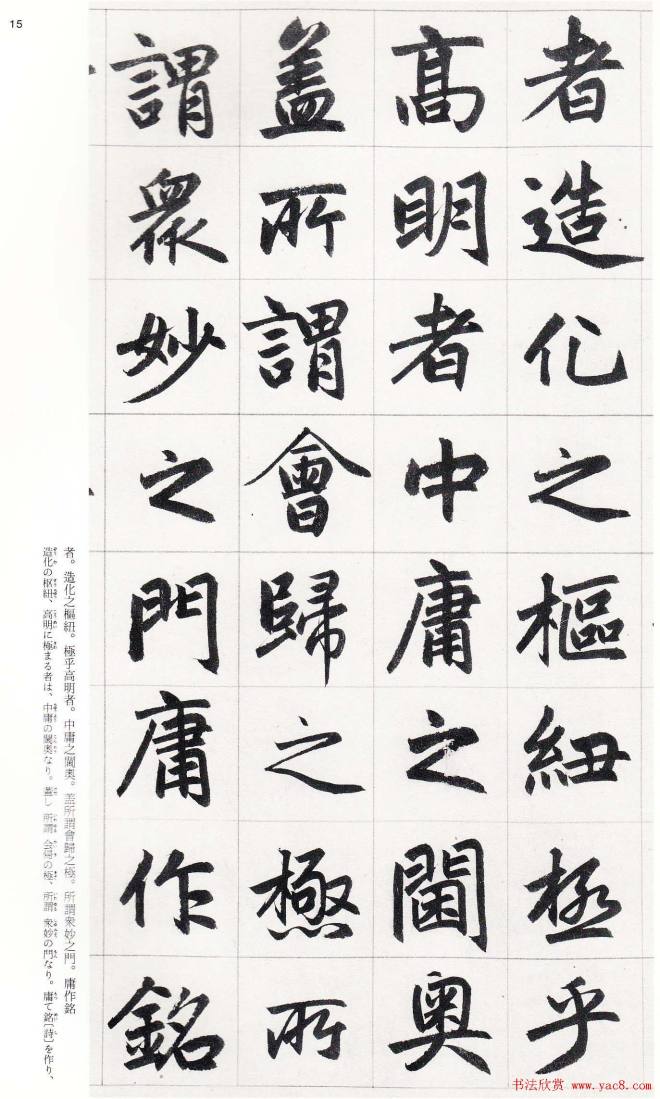 15
者造化之樞紐極乎
高明者中庸之閫奧
盖所謂會歸之極所
謂衆妙之門庸作銘
者。造化之樞紐。極乎高明者。中庸之閫奧。盖所謂會歸之極。所謂衆妙之門。庸作銘
造化の枢紐、高明に極まる者は、中庸の閫奥なり。蓋し所謂会帰の極、所謂衆妙の門なり。庸て銘〔詩〕を作り、
书法欣赏 www.yac8.com